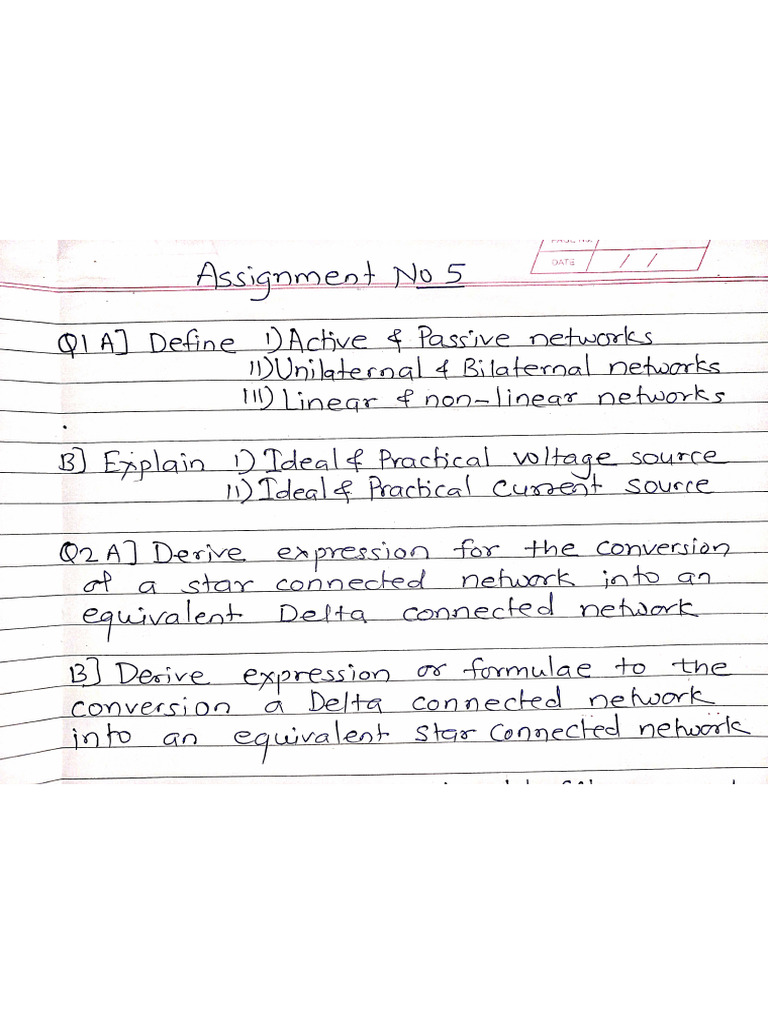 PAGE No.
DATE / /
Assignment No 5
Q1 A] Define I) Active & Passive networks
II) Unilaternal & Bilaternal networks
III) Linear & non-linear networks
B] Explain I) Ideal & Practical voltage source
II) Ideal & Practical Current source
Q2 A] Derive expression for the conversion
of a star connected network into an
equivalent Delta connected network
B] Derive expression or formulae to the
conversion a Delta connected network
into an equivalent star connected network